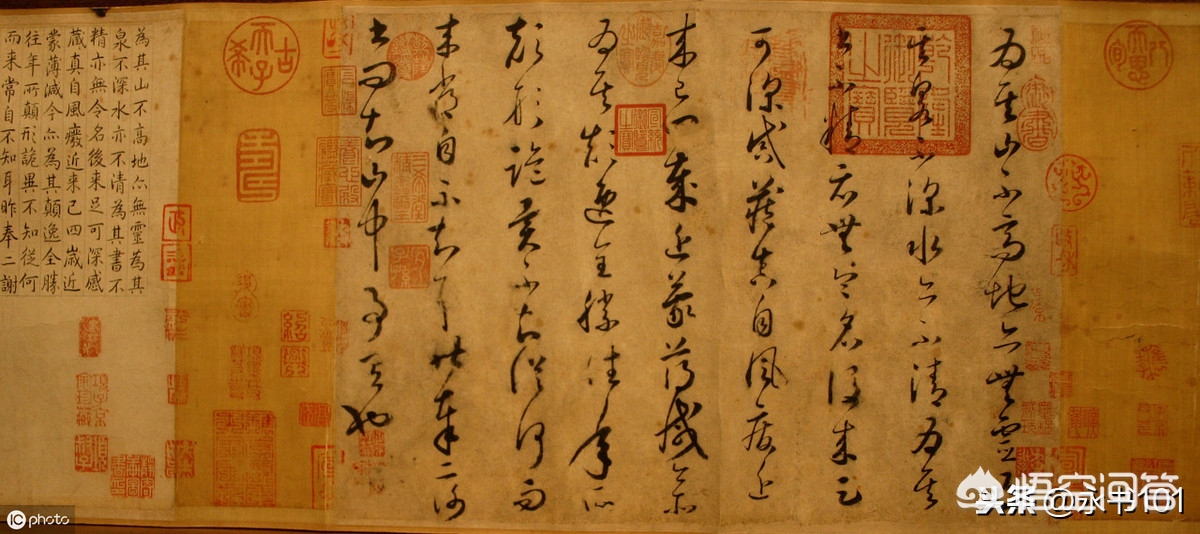 為其山不高地亦無靈為
其泉不深水亦不清為其
書不精亦無令名後來足
可深戒藏真自風廢近
來已四歲近蒙薄減今亦
為其顛逸全勝往年所
顛形詭異不知從何而
來常自不知耳昨奉二謝
書問知山中事有也
為其山不高地亦無靈為其
泉不深水亦不清為其書不
精亦無令名後来足可深感
蔵真自風癈近来已四歲近
蒙薄減今亦為其顛逸全勝
往年所顛形詭異不知從何
而来常自不知耳昨奉二謝
古希天子
悟空问答
头条@永书101
IC photo